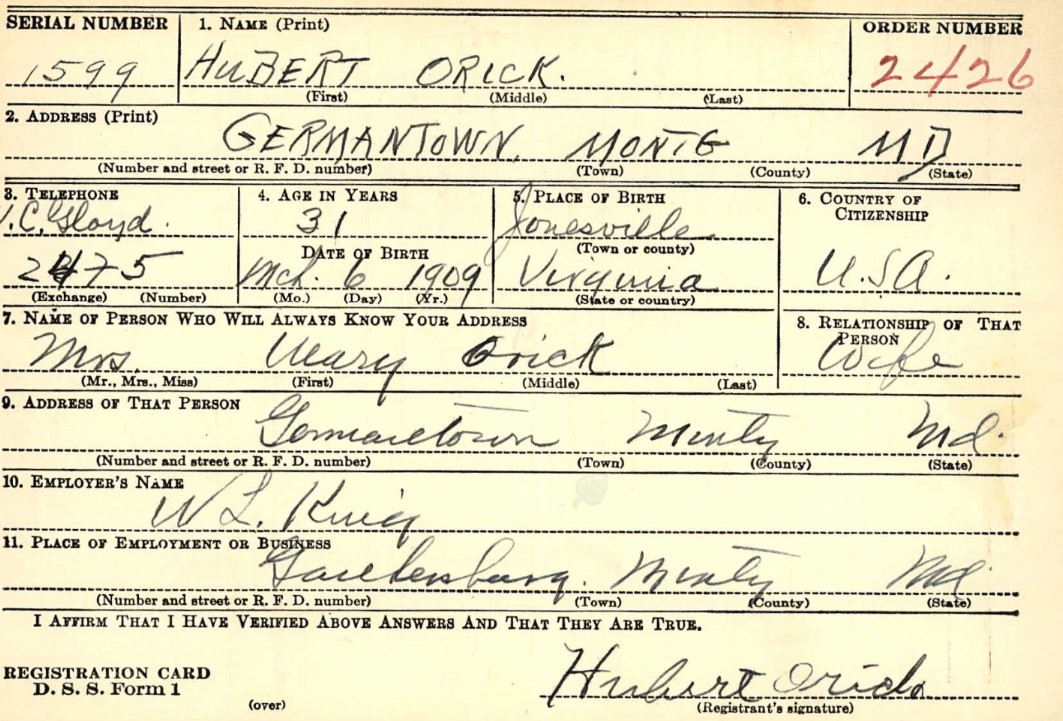 SERIAL NUMBER 1. NAME (Print) ORDER NUMBER
1599 HUBERT ORICK. 2426
(First) (Middle) (Last)
2. ADDRESS (Print)
GERMANTOWN, MONTG MD
(Number and street or R. F. D. number) (Town) (County) (State)
3. TELEPHONE 4. AGE IN YEARS 5. PLACE OF BIRTH 6. COUNTRY OF
CITIZENSHIP
V.C. Gloyd. 31 Jonesville
DATE OF BIRTH (Town or county)
2475 Mch. 6 1909 Virginia U.S.A.
(Exchange) (Number) (Mo.) (Day) (Yr.) (State or country)
7. NAME OF PERSON WHO WILL ALWAYS KNOW YOUR ADDRESS 8. RELATIONSHIP OF THAT
PERSON
Mrs. Mary Orick Wife
(Mr., Mrs., Miss) (First) (Middle) (Last)
9. ADDRESS OF THAT PERSON
Germantown Md.
(Number and street or R. F. D. number) (Town) (County) (State)
10. EMPLOYER'S NAME
W L. King
11. PLACE OF EMPLOYMENT OR BUSINESS
Gaithersburg. Md.
(Number and street or R. F. D. number) (Town) (County) (State)
I AFFIRM THAT I HAVE VERIFIED ABOVE ANSWERS AND THAT THEY ARE TRUE.
REGISTRATION CARD
D. S. S. Form 1
(over)
Hubert Orick
(Registrant's signature)